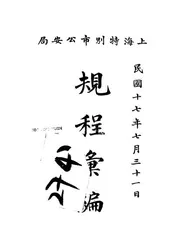 上海特別市公安局
民國十七年七月三十一日
規程彙編